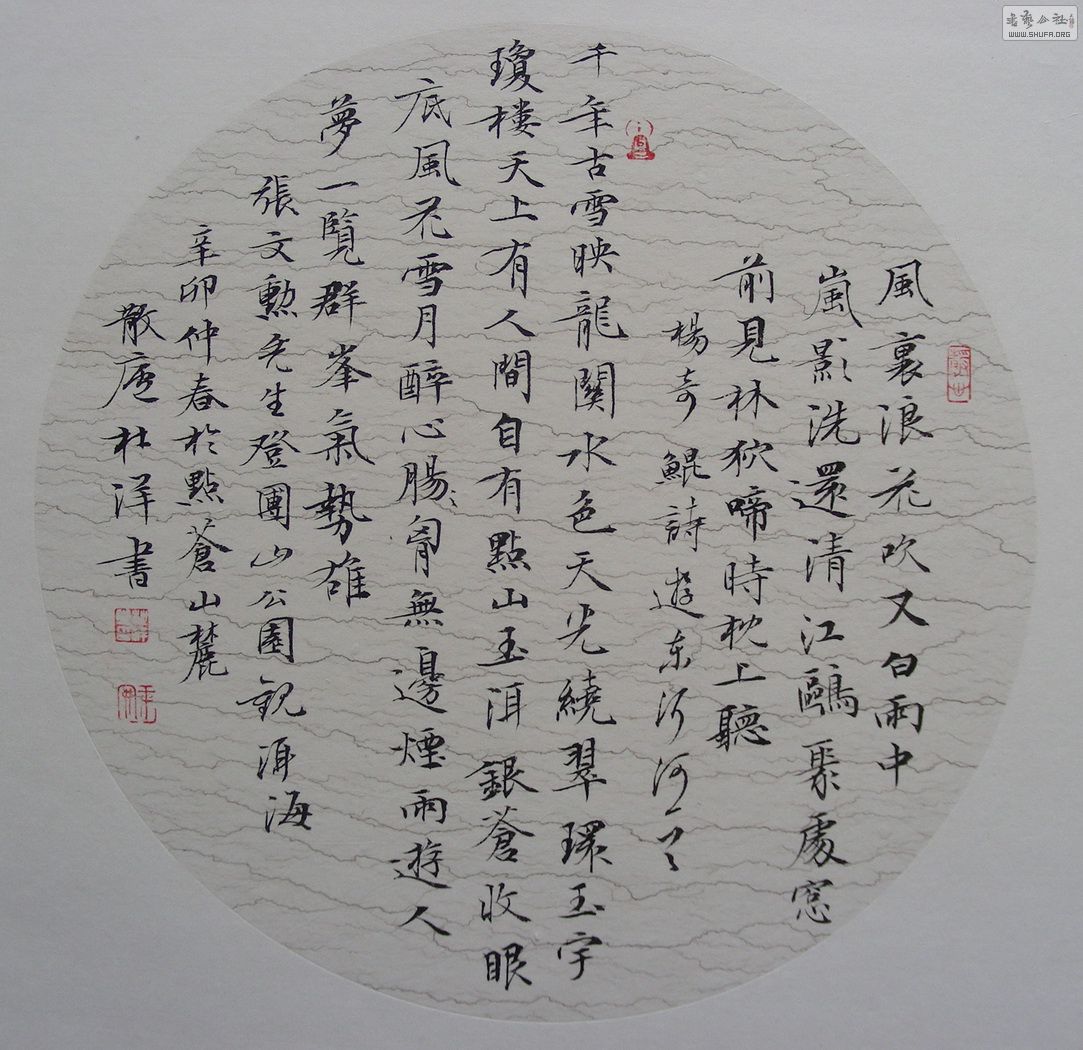 風裏浪花吹又白雨中
嵐影洗還清江鷗聚處窓
前見林狖啼時枕上聽
楊奇鯤詩遊東洱河
千年古雪映龍關水色天光繞翠環玉宇
瓊樓天上有人間自有點山玉洱銀蒼收眼
底風花雪月醉心腸胷無邊煙雨遊人
夢一覽群峯氣勢雄
張文勲先生登團山公園觀洱海
辛卯仲春於點蒼山麓
散庵杜洋書
書藝公社
WWW.SHUFA.ORG